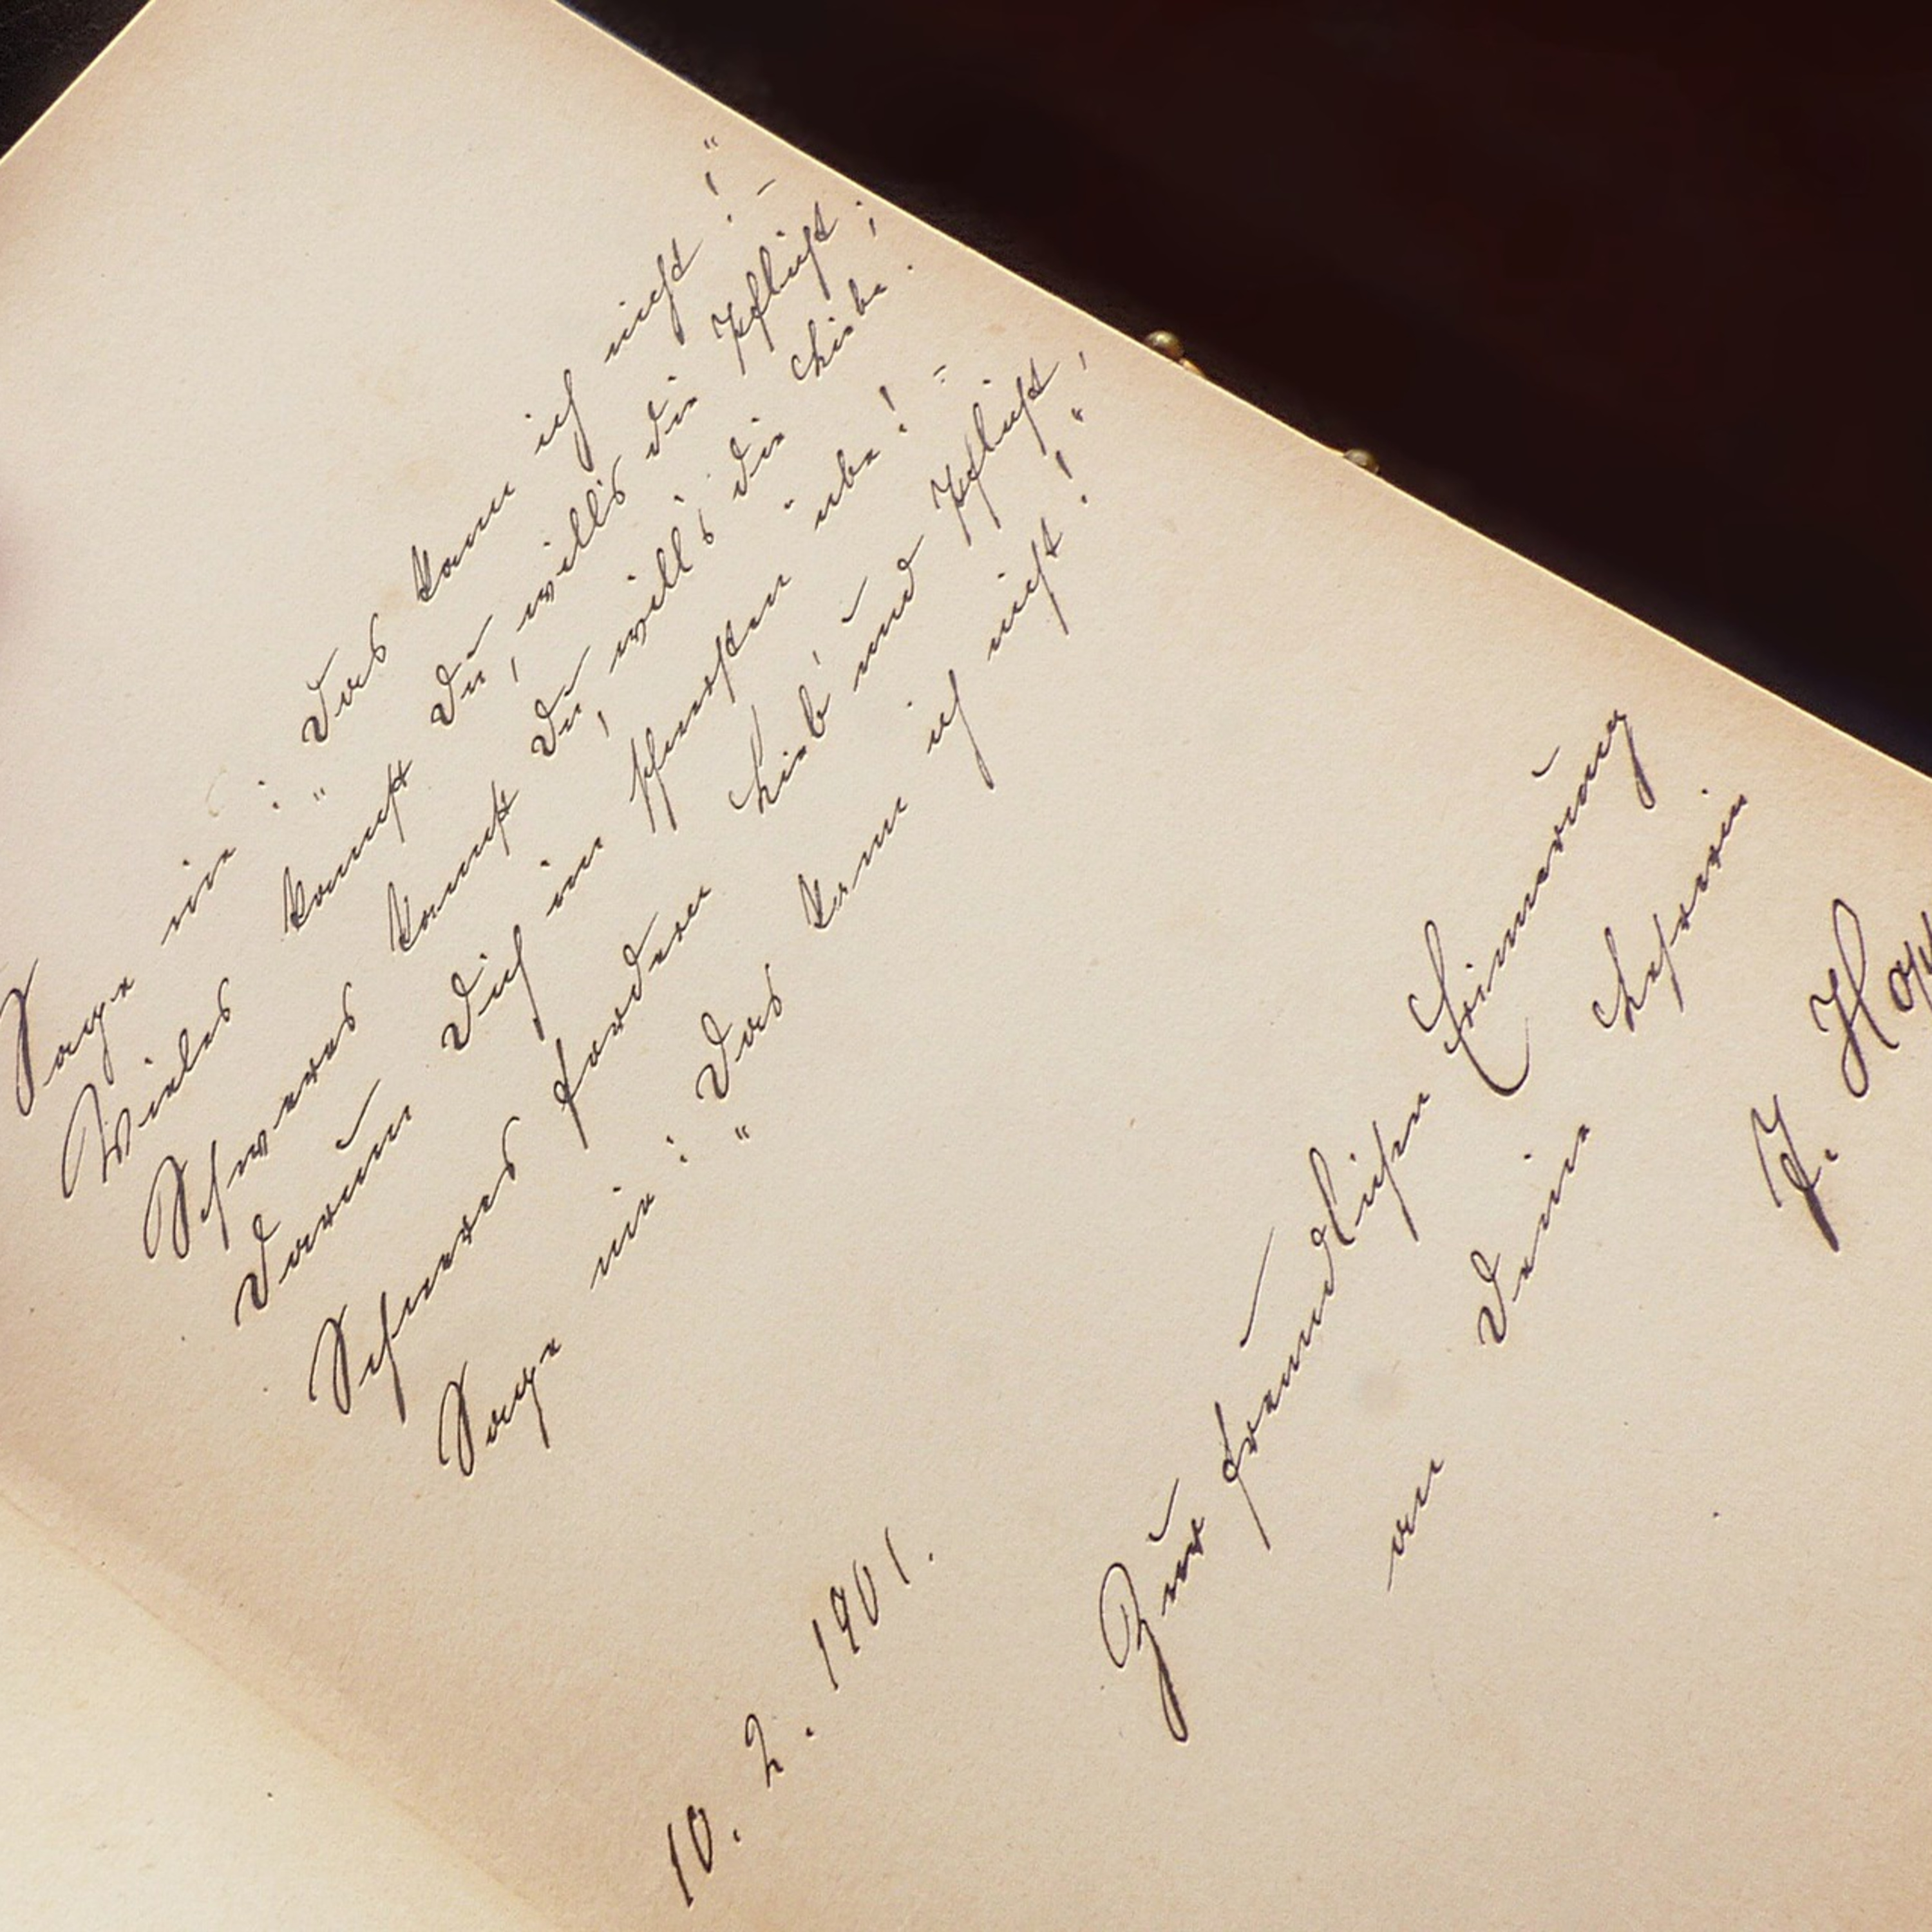 Sage nie: „Das kann ich nicht!“ –
Vieles kannst Du, will's die Pflicht;
Schweres kannst Du, will's die Liebe.
Darum Dich im Schwersten übe! –
Schweres fordern Lieb' und Pflicht,
Sage nie: „Das kann ich nicht!“
10. 2. 1901.
Zur freundlichen Erinnerung
an Deine Lehrerin
J.